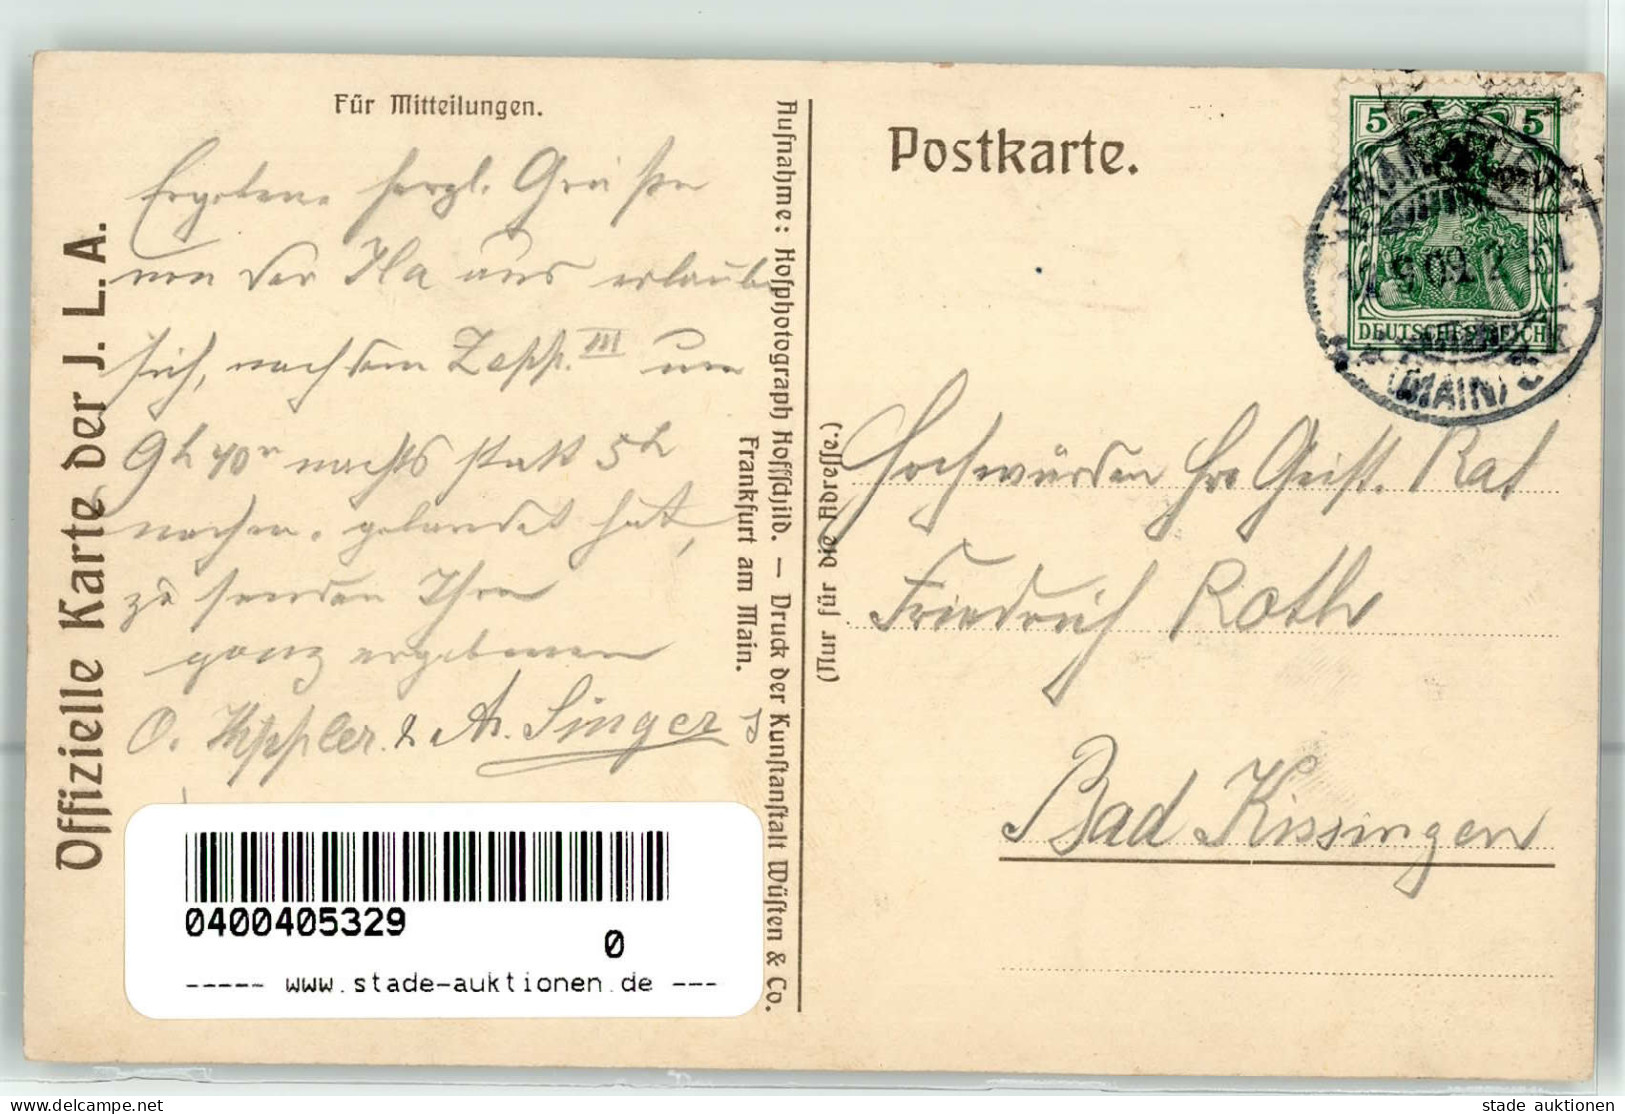 Für Mitteilungen.
Ergebene herzl. Grüße
von der Ila uns erlaube
sich, nachdem Zepp. III um
9h 40m nachts statt 5h
nachm. gelandet hat,
zu senden Ihre
ganz ergebenen
O. Kppler & A. Singer
Offizielle Karte der J. L. A.
Aufnahme: Hofphotograph Hoffschild. — Druck der Kunstanstalt Wüsten & Co.
Frankfurt am Main.
(Nur für die Adresse.)
Postkarte.
5 5
DEUTSCHES REICH
(MAIN)
Hochwürden Hre Geistl. Rat
Friedrich Roth
Bad Kissingen
0400405329
0
----- www.stade-auktionen.de ---
delcampe.net
stade auktionen